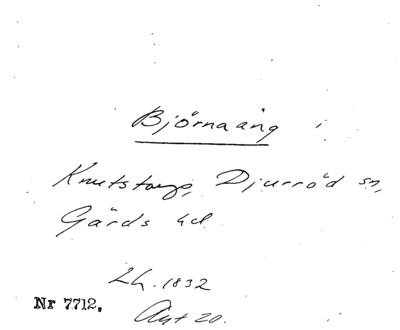 Björnaäng i
Knutstorp, Djurröd sn,
Gärds hd
Lh. 1832
Nr 7712. Akt 20.